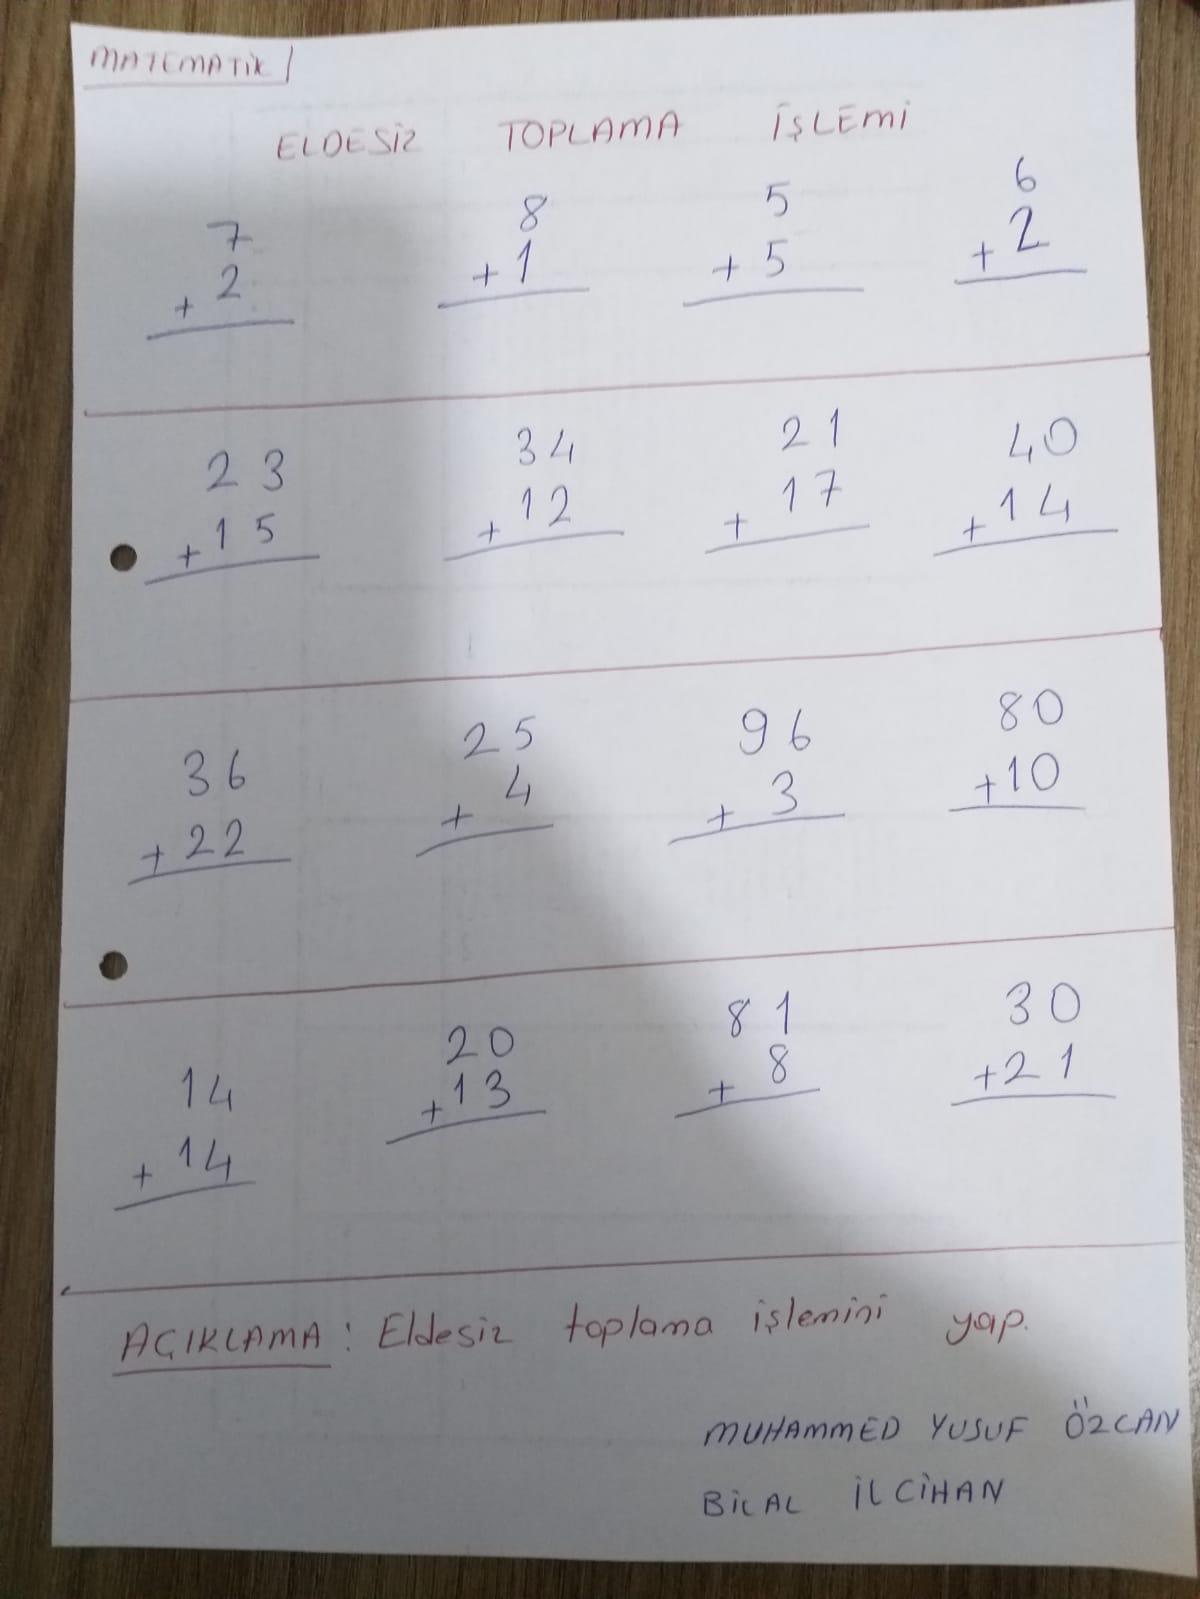 MATEMATİK
ELDESİZ TOPLAMA İŞLEMİ
7 8 5 6
+ 2 + 1 + 5 + 2
23 34 21 40
+ 15 + 12 + 17 + 14
36 25 96 80
+ 22 + 4 + 3 + 10
14 20 81 30
+ 14 + 13 + 8 + 21
AÇIKLAMA : Eldesiz toplama işlemini yap.
MUHAMMED YUSUF ÖZCAN
BİLAL İLCİHAN